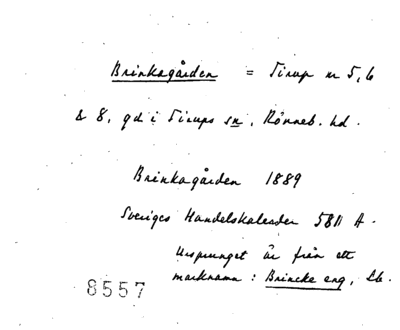 Brinkagården = Tirup nr 5, 6
& 8, gd i Tirups sn, Rönneb. hd.
Brinkagården 1889
Sveriges Handelskalender 581 A.
Ursprunget är från ett
marknamn: Brincke eng, Lb.
8557